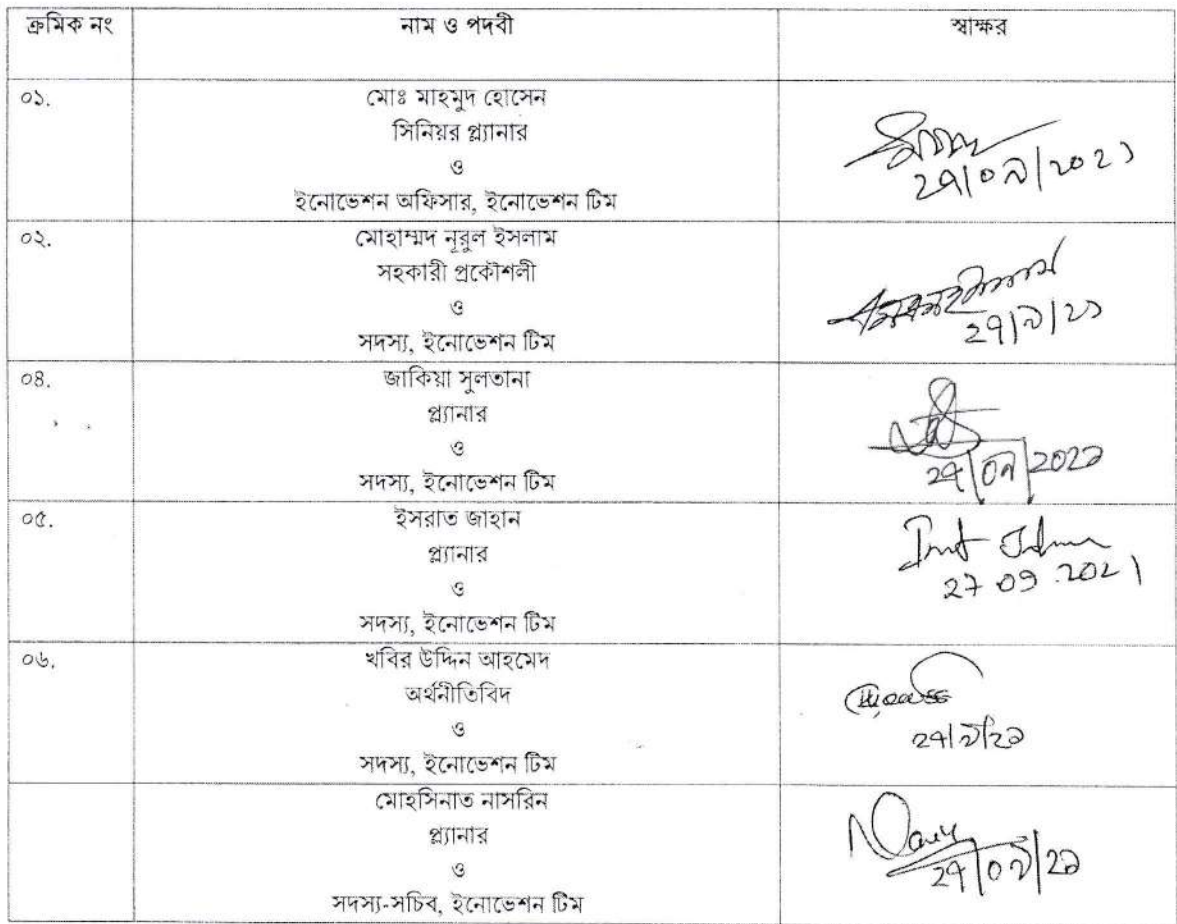 ক্রমিক নং নাম ও পদবী স্বাক্ষর
০১. মোঃ মাহমুদ হোসেন
সিনিয়র প্ল্যানার
ও
ইনোভেশন অফিসার, ইনোভেশন টিম
২৭/০৯/২০২১
০২. মোহাম্মদ নূরুল ইসলাম
সহকারী প্রকৌশলী
ও
সদস্য, ইনোভেশন টিম
২৭/৯/২১
০৪. জাকিয়া সুলতানা
প্ল্যানার
ও
সদস্য, ইনোভেশন টিম
২৭/০৯/২০২১
০৫. ইসরাত জাহান
প্ল্যানার
ও
সদস্য, ইনোভেশন টিম
27.09.2021
০৬. খবির উদ্দিন আহমেদ
অর্থনীতিবিদ
ও
সদস্য, ইনোভেশন টিম
২৭/৯/২১
মোহসিনাত নাসরিন
প্ল্যানার
ও
সদস্য-সচিব, ইনোভেশন টিম
২৭/০৯/২১